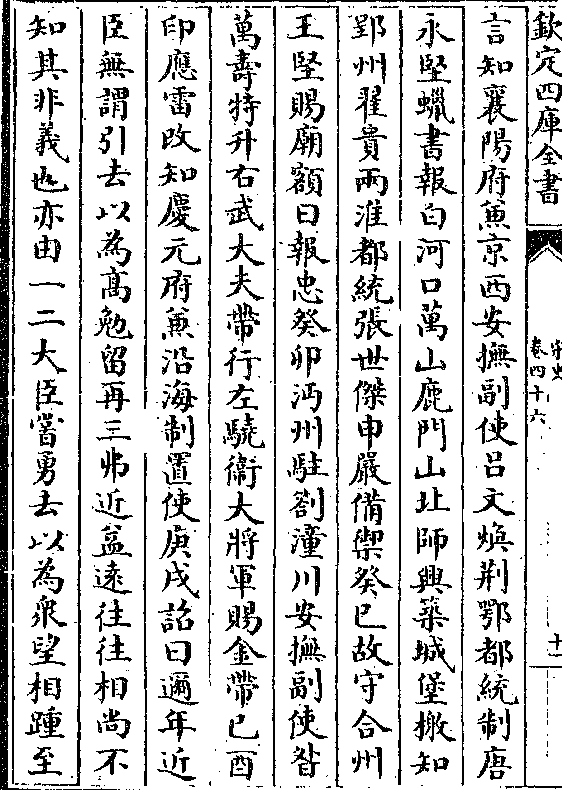 欽定四庫全書
宋史
卷四十六
十一
言知襄陽府兼京西安撫副使呂文煥荆鄂都統制唐
永堅蠟書報白河口萬山鹿門山北師興築城堡檄知
郢州翟貴兩淮都統張世傑申嚴備禦癸巳故守合州
王堅賜廟額曰報忠癸卯沔州駐劄潼川安撫副使昝
萬壽特升右武大夫帶行左驍衛大將軍賜金帶己酉
印應雷改知慶元府兼沿海制置使庚戌詔曰邇年近
臣無謂引去以為高勉留再三弗近益遠往往相尚不
知其非義也亦由一二大臣嘗勇去以為衆望相踵至